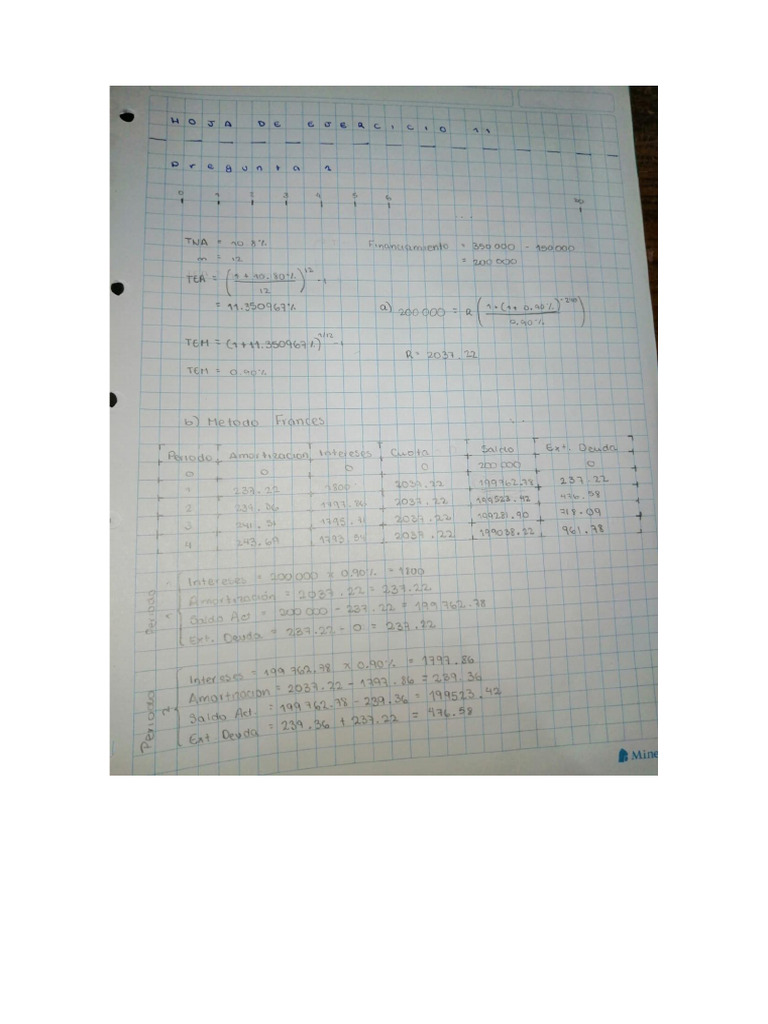 HOJA DE EJERCICIO 11
Pregunta 1
0 1 2 3 4 5 6
...
TNA = 10.8%
m = 12
TEA = (1 + 10.80% / 12)^12 - 1
= 11.350967%
TEM = (1+11.350967%)^1/12 - 1
TEM = 0.90%
Financiamiento = 350 000 - 150 000
= 200 000
a) 200 000 = R (1-(1+0.90%)^-240 / 0.90%)
R = 2037.22
b) Metodo Frances
Periodo Amortizacion Intereses Cuota Saldo Ext. Deuda
0 0 0 0 200 000 0
1 237.22 1800 2037.22 199762.78 237.22
2 239.36 1797.86 2037.22 199523.42 476.58
3 241.51 1795.71 2037.22 199281.90 718.09
4 243.69 1793.54 2037.22 199038.22 961.78
Periodo 1
Intereses = 200,000 x 0.90% = 1800
Amortización = 2037.22 = 237.22
Saldo Act = 200 000 - 237.22 = 199 762.78
Ext. Deuda = 237.22 - 0 = 237.22
Periodo 2
Intereses = 199 762.78 x 0.90% = 1797.86
Amortizacion = 2037.22 - 1797.86 = 239.36
Saldo Act. = 199762.78 - 239.36 = 199523.42
Ext Deuda = 239.36 + 237.22 = 476.58